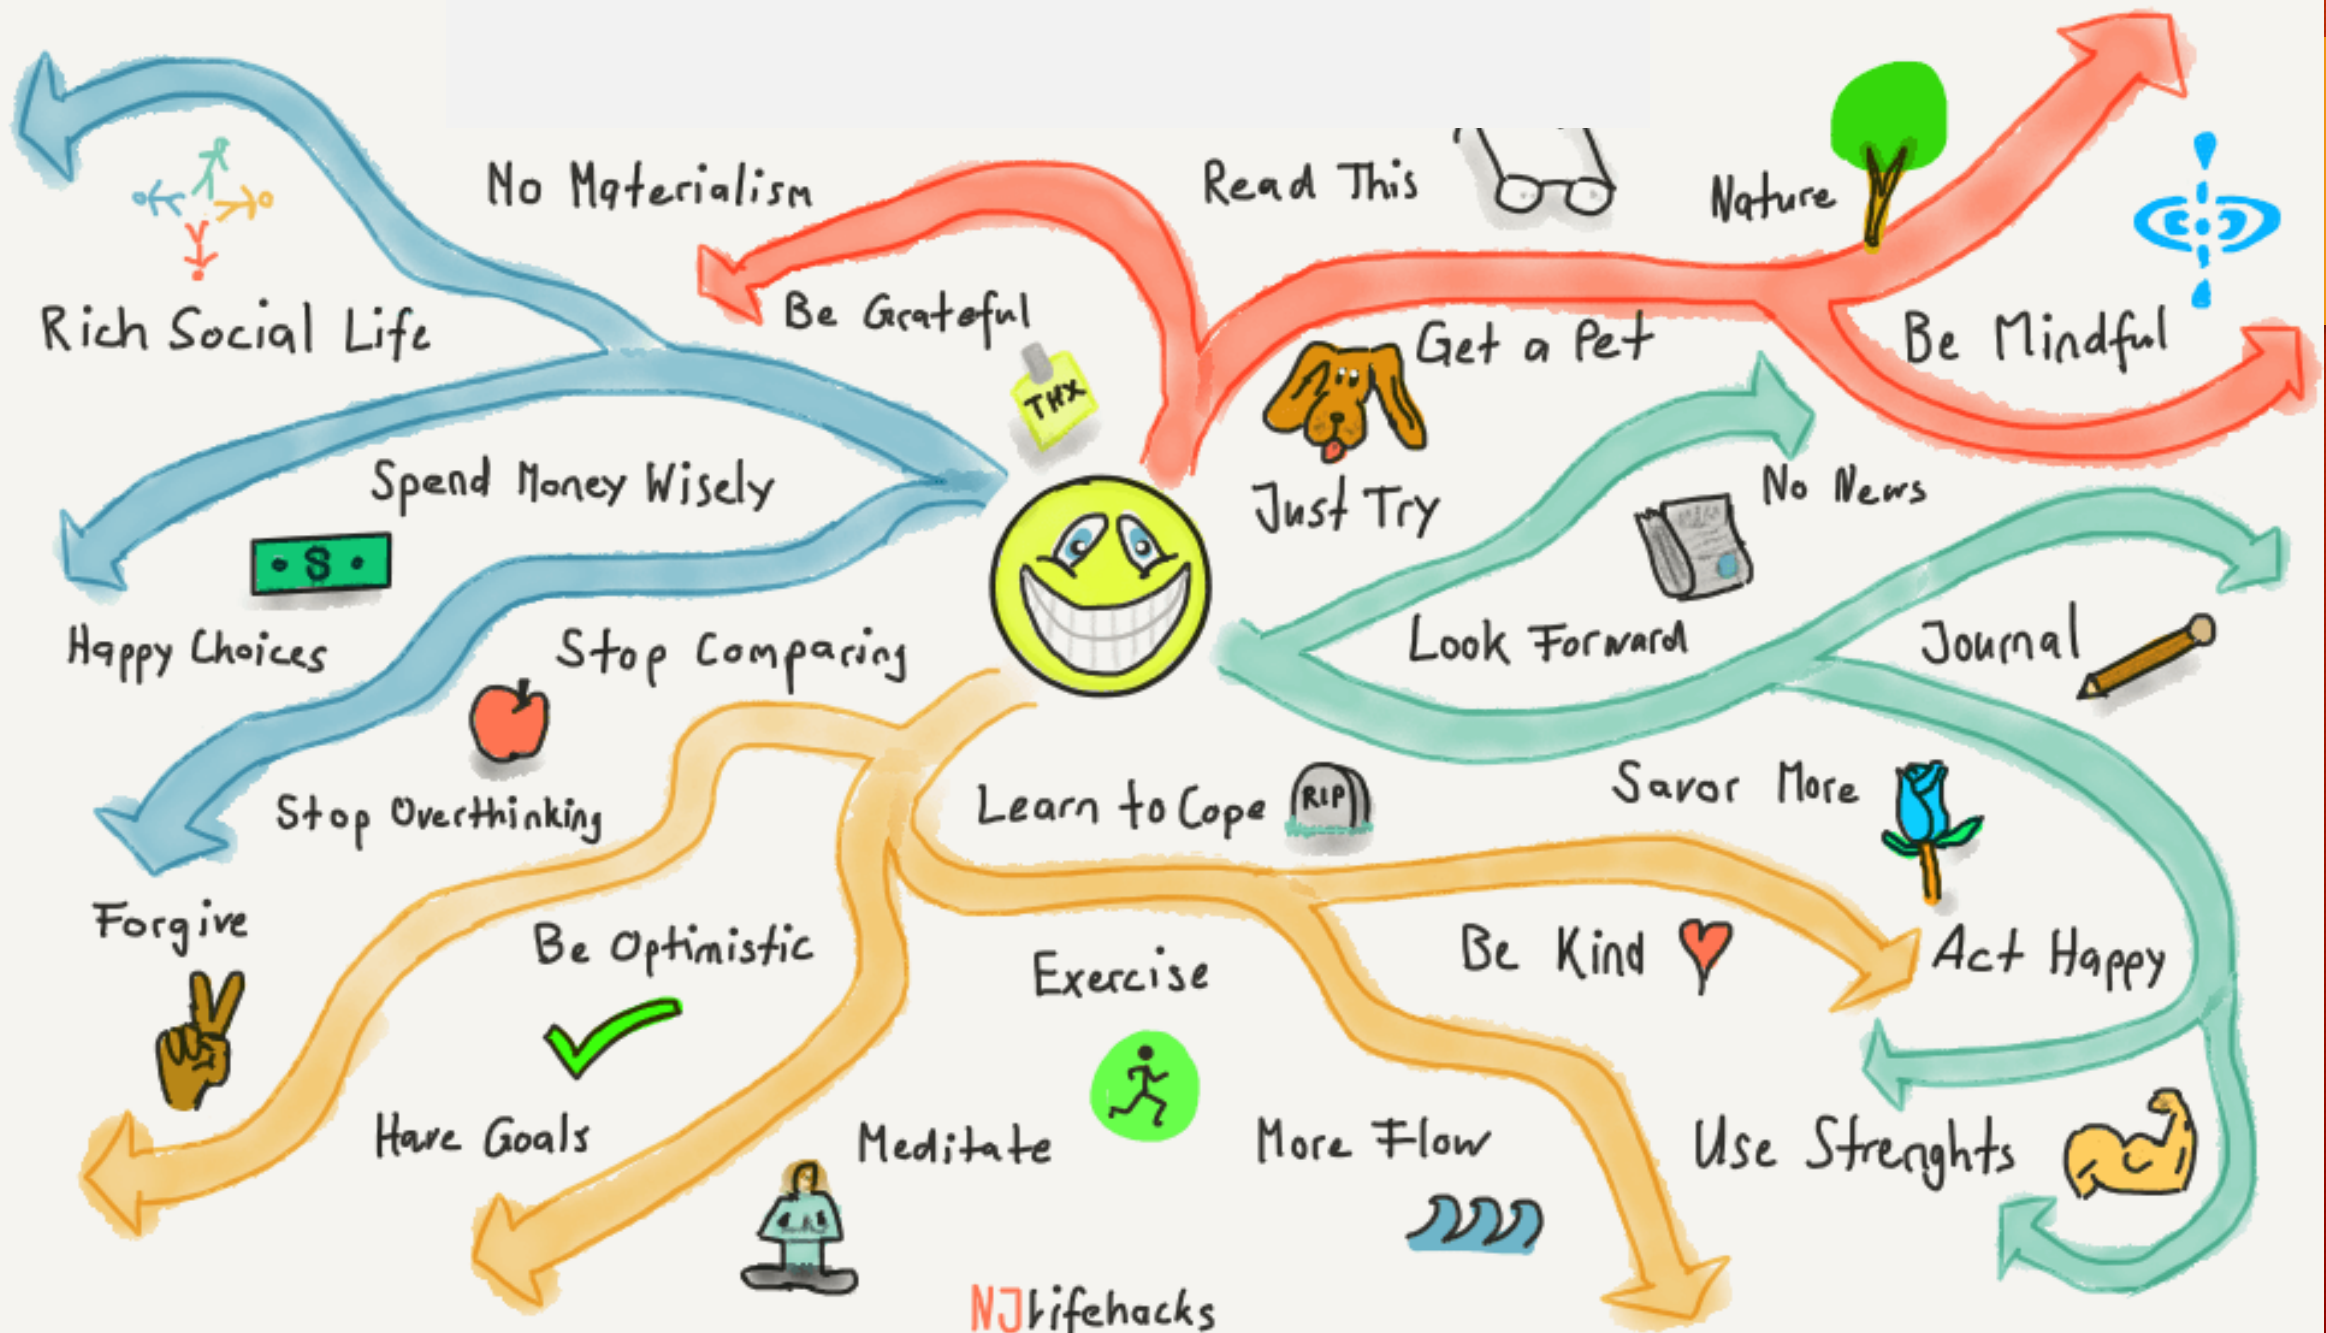 No Materialism
Read This
Nature
Rich Social Life
Be Grateful
THX
Get a Pet
Be Mindful
Spend Money Wisely
$
Just Try
No News
Happy Choices
Stop Comparing
Look Forward
Journal
Stop Overthinking
Learn to Cope
RIP
Savor More
Forgive
Be Optimistic
Exercise
Be Kind
Act Happy
Have Goals
Meditate
More Flow
Use Strenghts
NJlifehacks